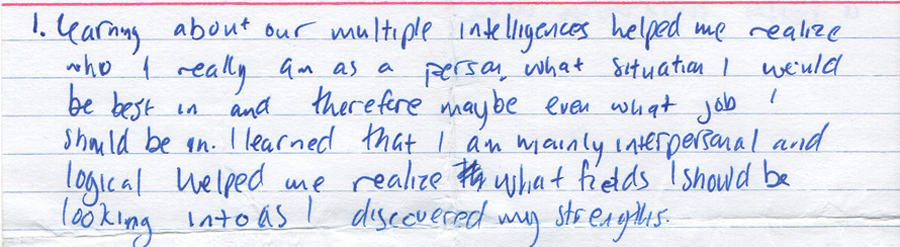 1. Learning about our multiple intelligences helped me realize
who I really am as a person, what situation I would
be best in and therefore maybe even what job I
should be in. I learned that I am mainly interpersonal and
logical helped me realize what fields I should be
looking into as I discovered my strengths.